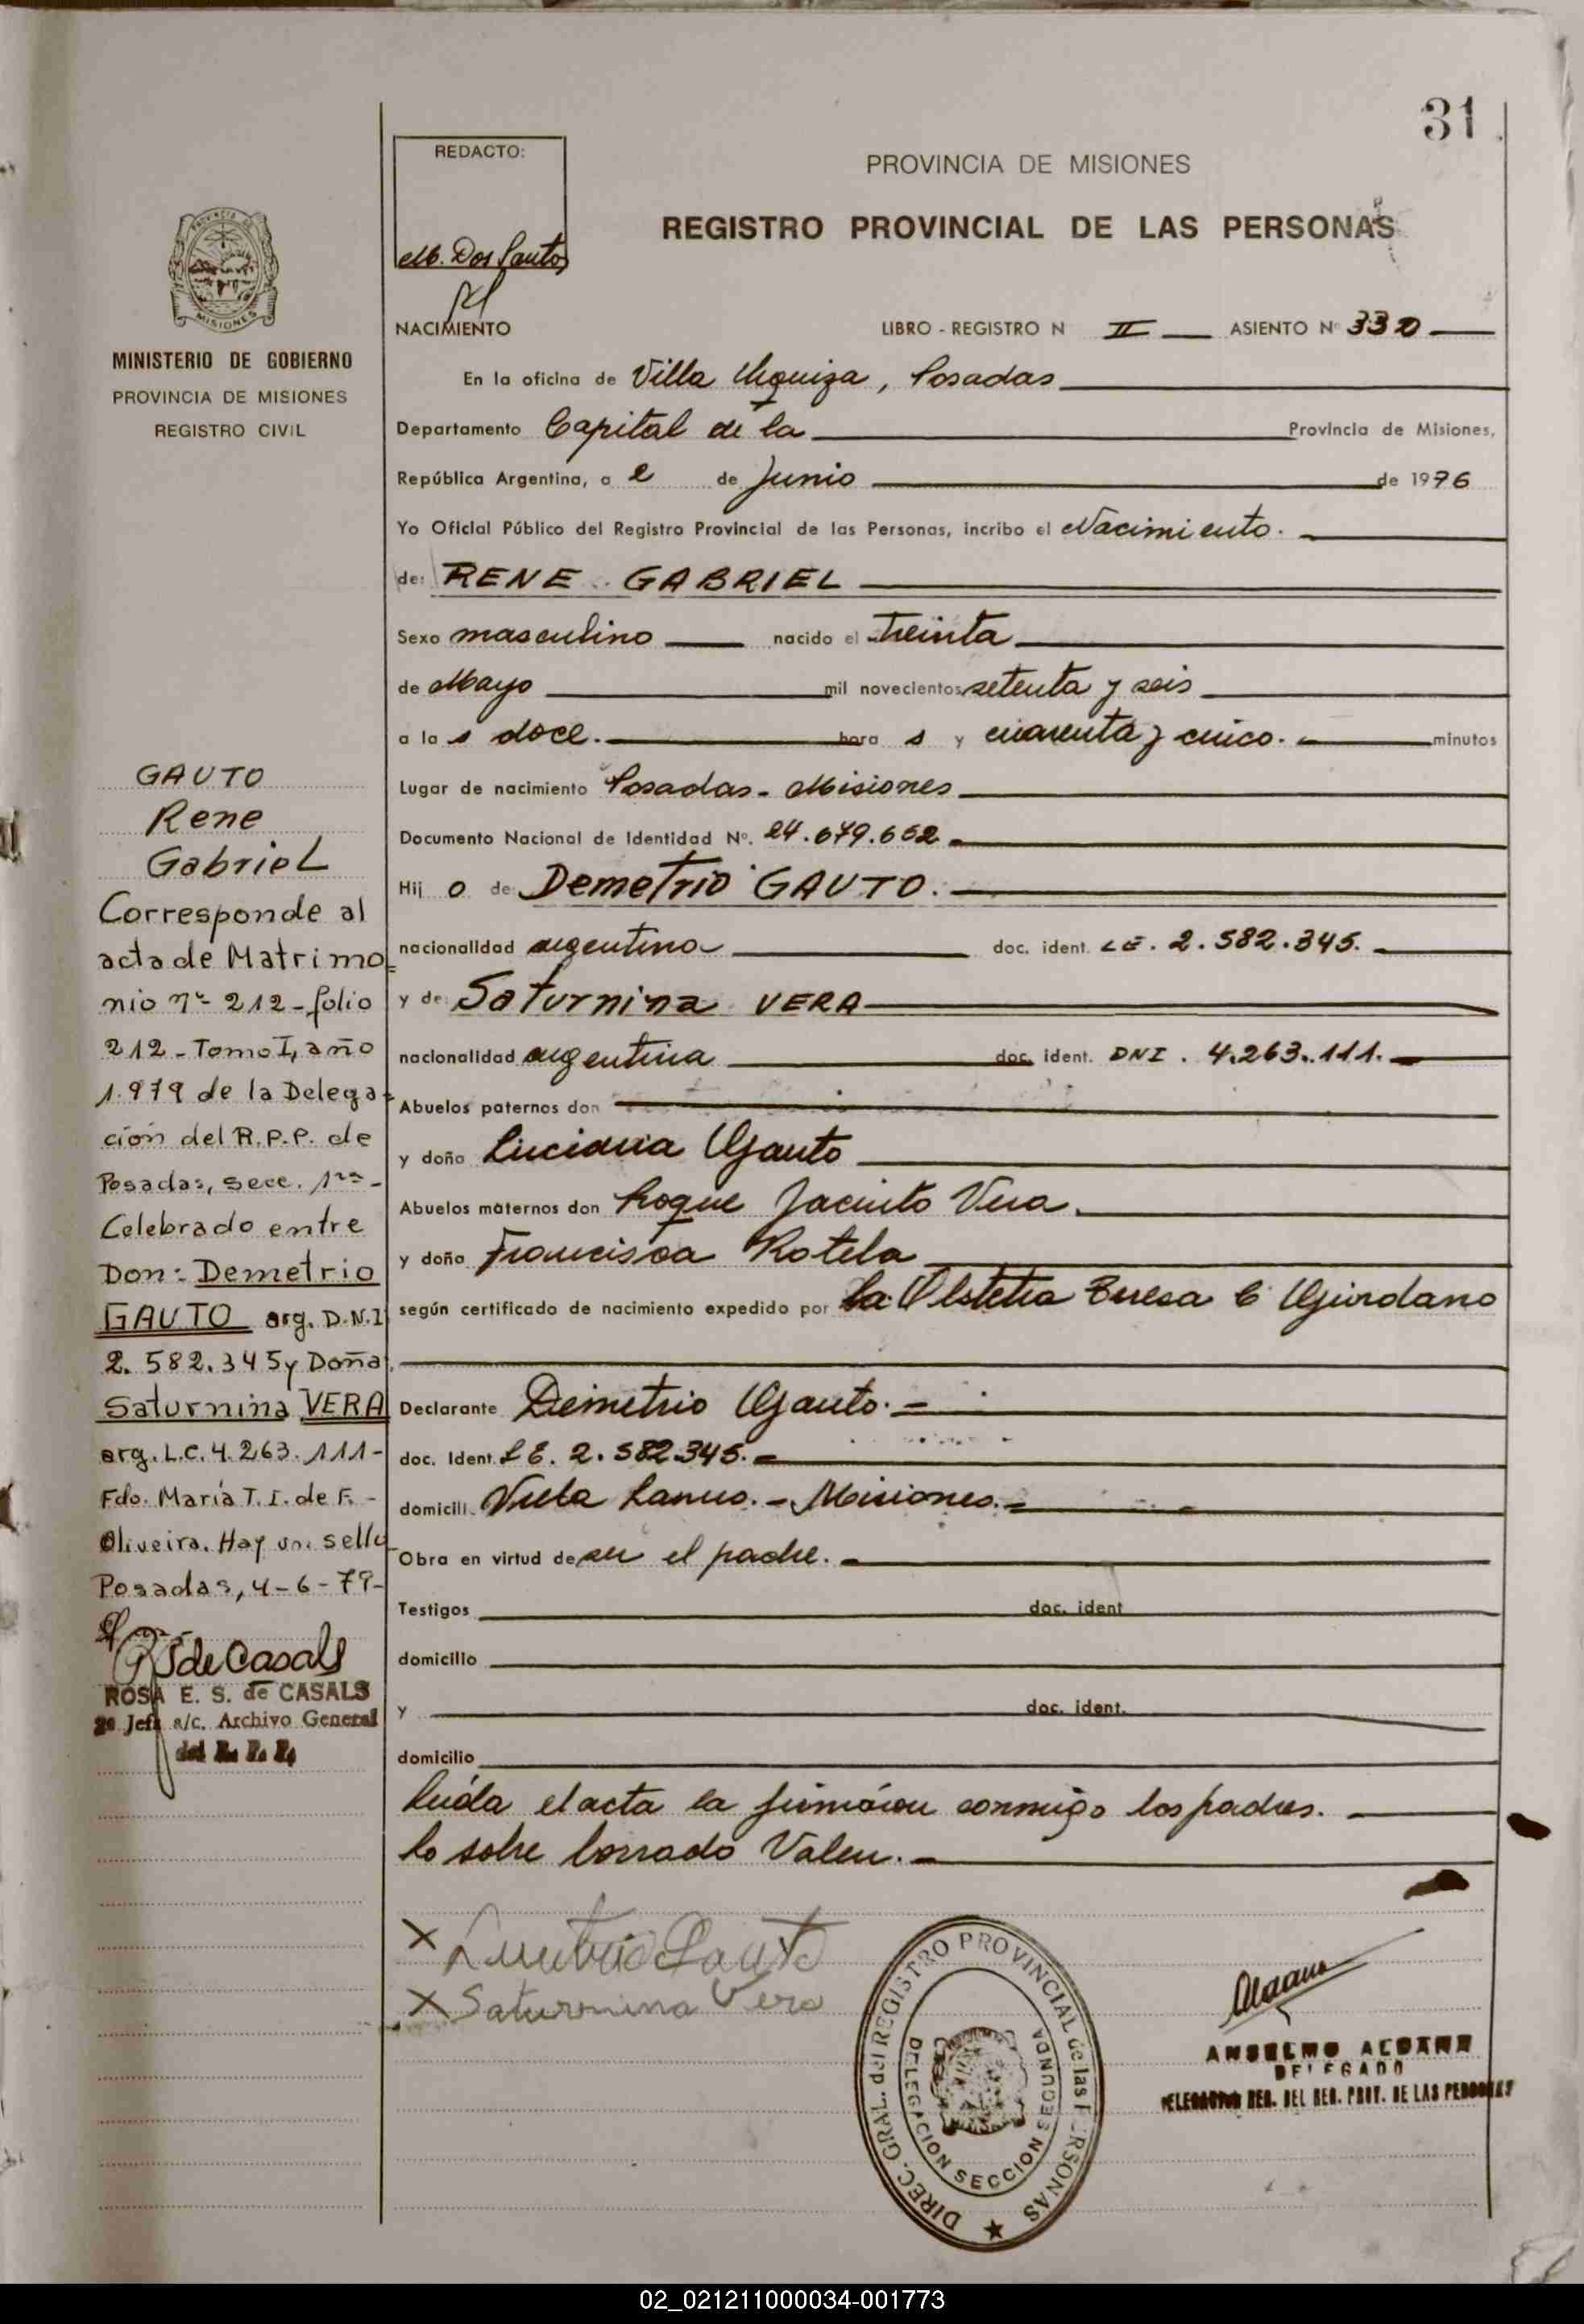 31
REDACTO:
M. Dos Santos
PROVINCIA DE MISIONES
REGISTRO PROVINCIAL DE LAS PERSONAS
MISIONES
MINISTERIO DE GOBIERNO
PROVINCIA DE MISIONES
REGISTRO CIVIL
NACIMIENTO LIBRO - REGISTRO N II ASIENTO Nº 330
En la oficina de Villa Urquiza, Posadas
Departamento Capital de la Provincia de Misiones,
República Argentina, a 2 de Junio de 1976
Yo Oficial Público del Registro Provincial de las Personas, incribo el Nacimiento.
de: RENE GABRIEL
Sexo masculino nacido el treinta
de Mayo mil novecientos setenta y seis
a la s doce. hora s y cuarenta y cinco. minutos
Lugar de nacimiento Posadas - Misiones
Documento Nacional de Identidad Nº. 24.679.652
Hij o de: Demetrio GAUTO.
nacionalidad argentina doc. ident. LE. 2.582.345.
y de: Saturnina VERA
nacionalidad argentina doc. ident. DNI. 4.263.111.
Abuelos paternos don
y doña Luciana Gauto
Abuelos maternos don Roque Jacinto Vera.
y doña Francisca Rotela
según certificado de nacimiento expedido por la Obstetra Teresa C Giordano
Declarante Demetrio Gauto.
doc. Ident. L E. 2.582.345.
domicili. Villa Lanus. - Misiones.
Obra en virtud de ser el padre.
Testigos doc. ident
domicilio
y doc. ident.
domicilio
Leída el acta la firmáron conmigo los padres.
lo sobre borrado Valen.
GAUTO
Rene
Gabriel
Corresponde al
acta de Matrimo=
nio nº 212 - folio
212 - Tomo I, año
1.979 de la Delega=
ción del R.P.P. de
Posadas, Secc. 1ra -
Celebrado entre
Don: Demetrio
GAUTO arg. D.N.I
2.582.345 y Doña
Saturnina VERA
arg. L.C. 4.263.111-
Fdo. María T. I. de F. -
Oliveira. Hay un sello
Posadas, 4-6-79-
RSdeCasals
ROSA E. S. de CASALS
2º Jefa a/c. Archivo General
del R. P. P.
X Demetrio Gauto
X Saturnina Vera
DIREC. GRAL. del REGISTRO PROVINCIAL de las PERSONAS
DELEGACION SECCION SEGUNDA
Aldana
ANSELMO ALDANA
DELEGADO
DELEGACION REG. DEL REG. PROV. DE LAS PERSONAS
02_021211000034-001773